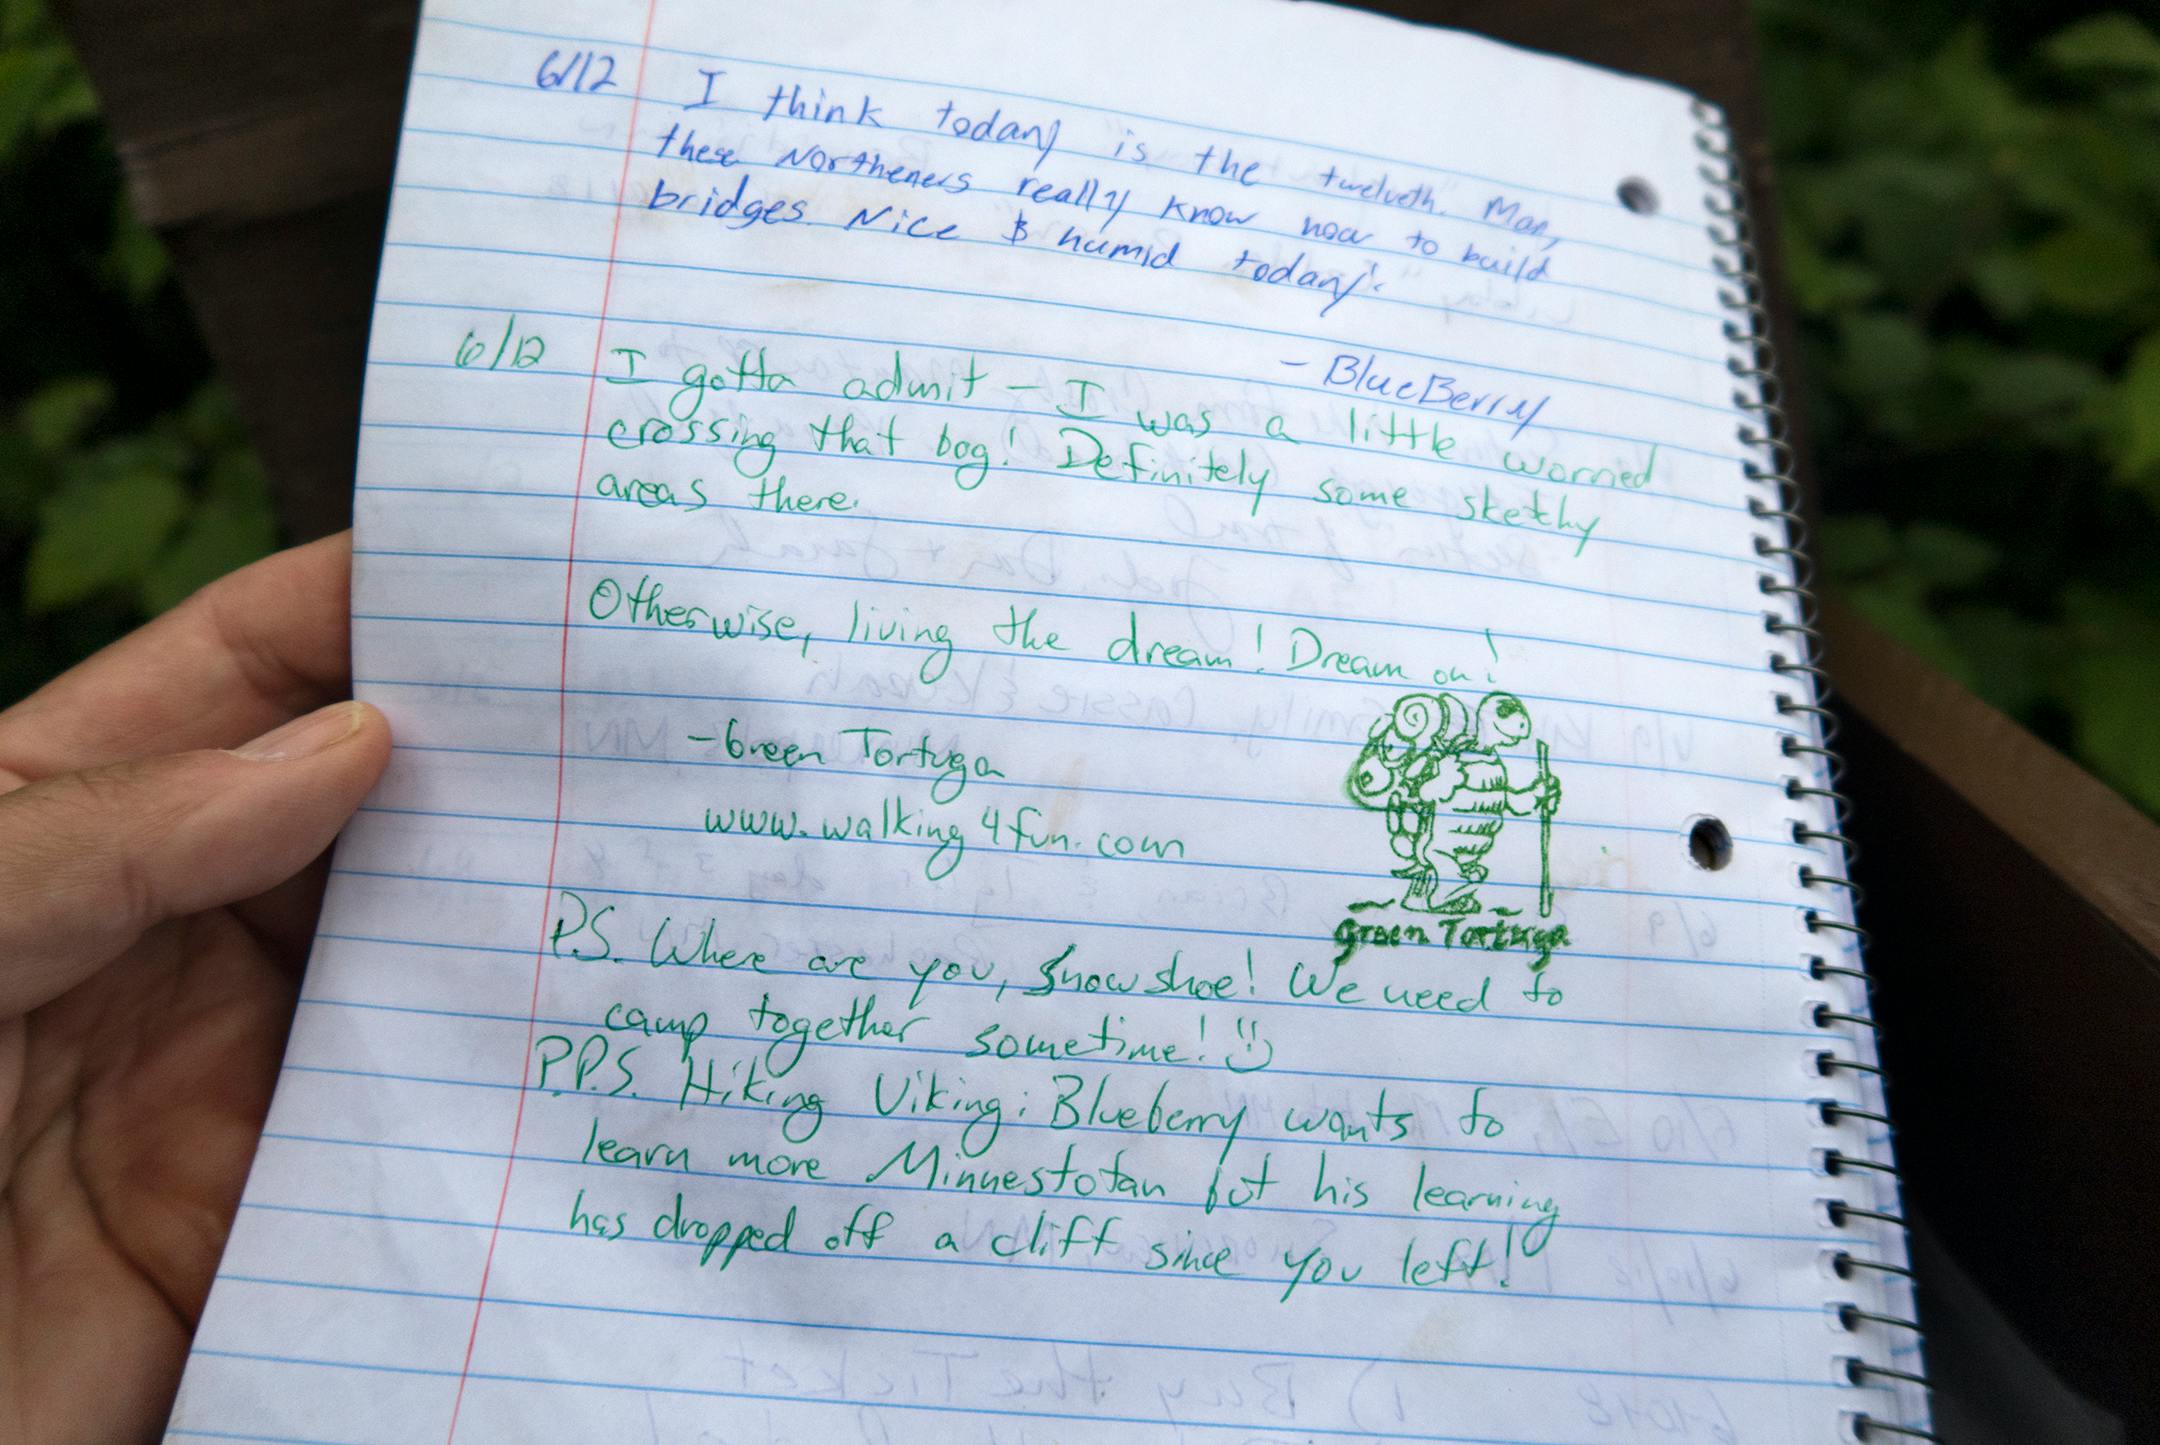 6/12 I think today is the twelveth. Man,
these Northeners really know how to build
bridges. Nice & humid today!
- BlueBerry
6/12 I gotta admit - I was a little worried
crossing that bog! Definitely some sketchy
areas there.
Otherwise, living the dream! Dream on!
- Green Tortuga
www.walking4fun.com
Green Tortuga
P.S. Where are you, Snowshoe! We need to
camp together sometime!
P.P.S. Hiking Viking: Blueberry wants to
learn more Minnestotan but his learning
has dropped off a cliff since you left!
1) Buy the Ticket